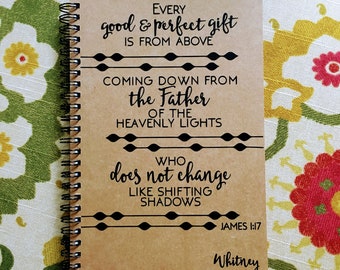 EVERY
good & perfect gift
IS FROM ABOVE
COMING DOWN FROM
the Father
OF THE
HEAVENLY LIGHTS
WHO
does not change
LIKE SHIFTING
SHADOWS
JAMES 1:17
Whitney